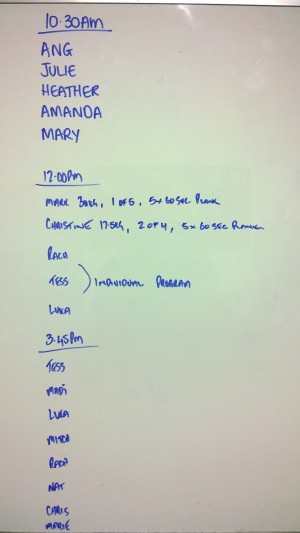 10.30AM
ANG
JULIE
HEATHER
AMANDA
MARY
12.00PM
MARK 30kg, 1 OF 5, 5x60SEC PLANK
CHRISTINE 17.5kg, 2 OF 4, 5x60SEC PLANK.
RACH
TESS ) INDIVIDUAL PROGRAM
LUKA
3.45PM
TESS
MADI
LUKA
MITCH
RACH
NAT
CHRIS
MARIE